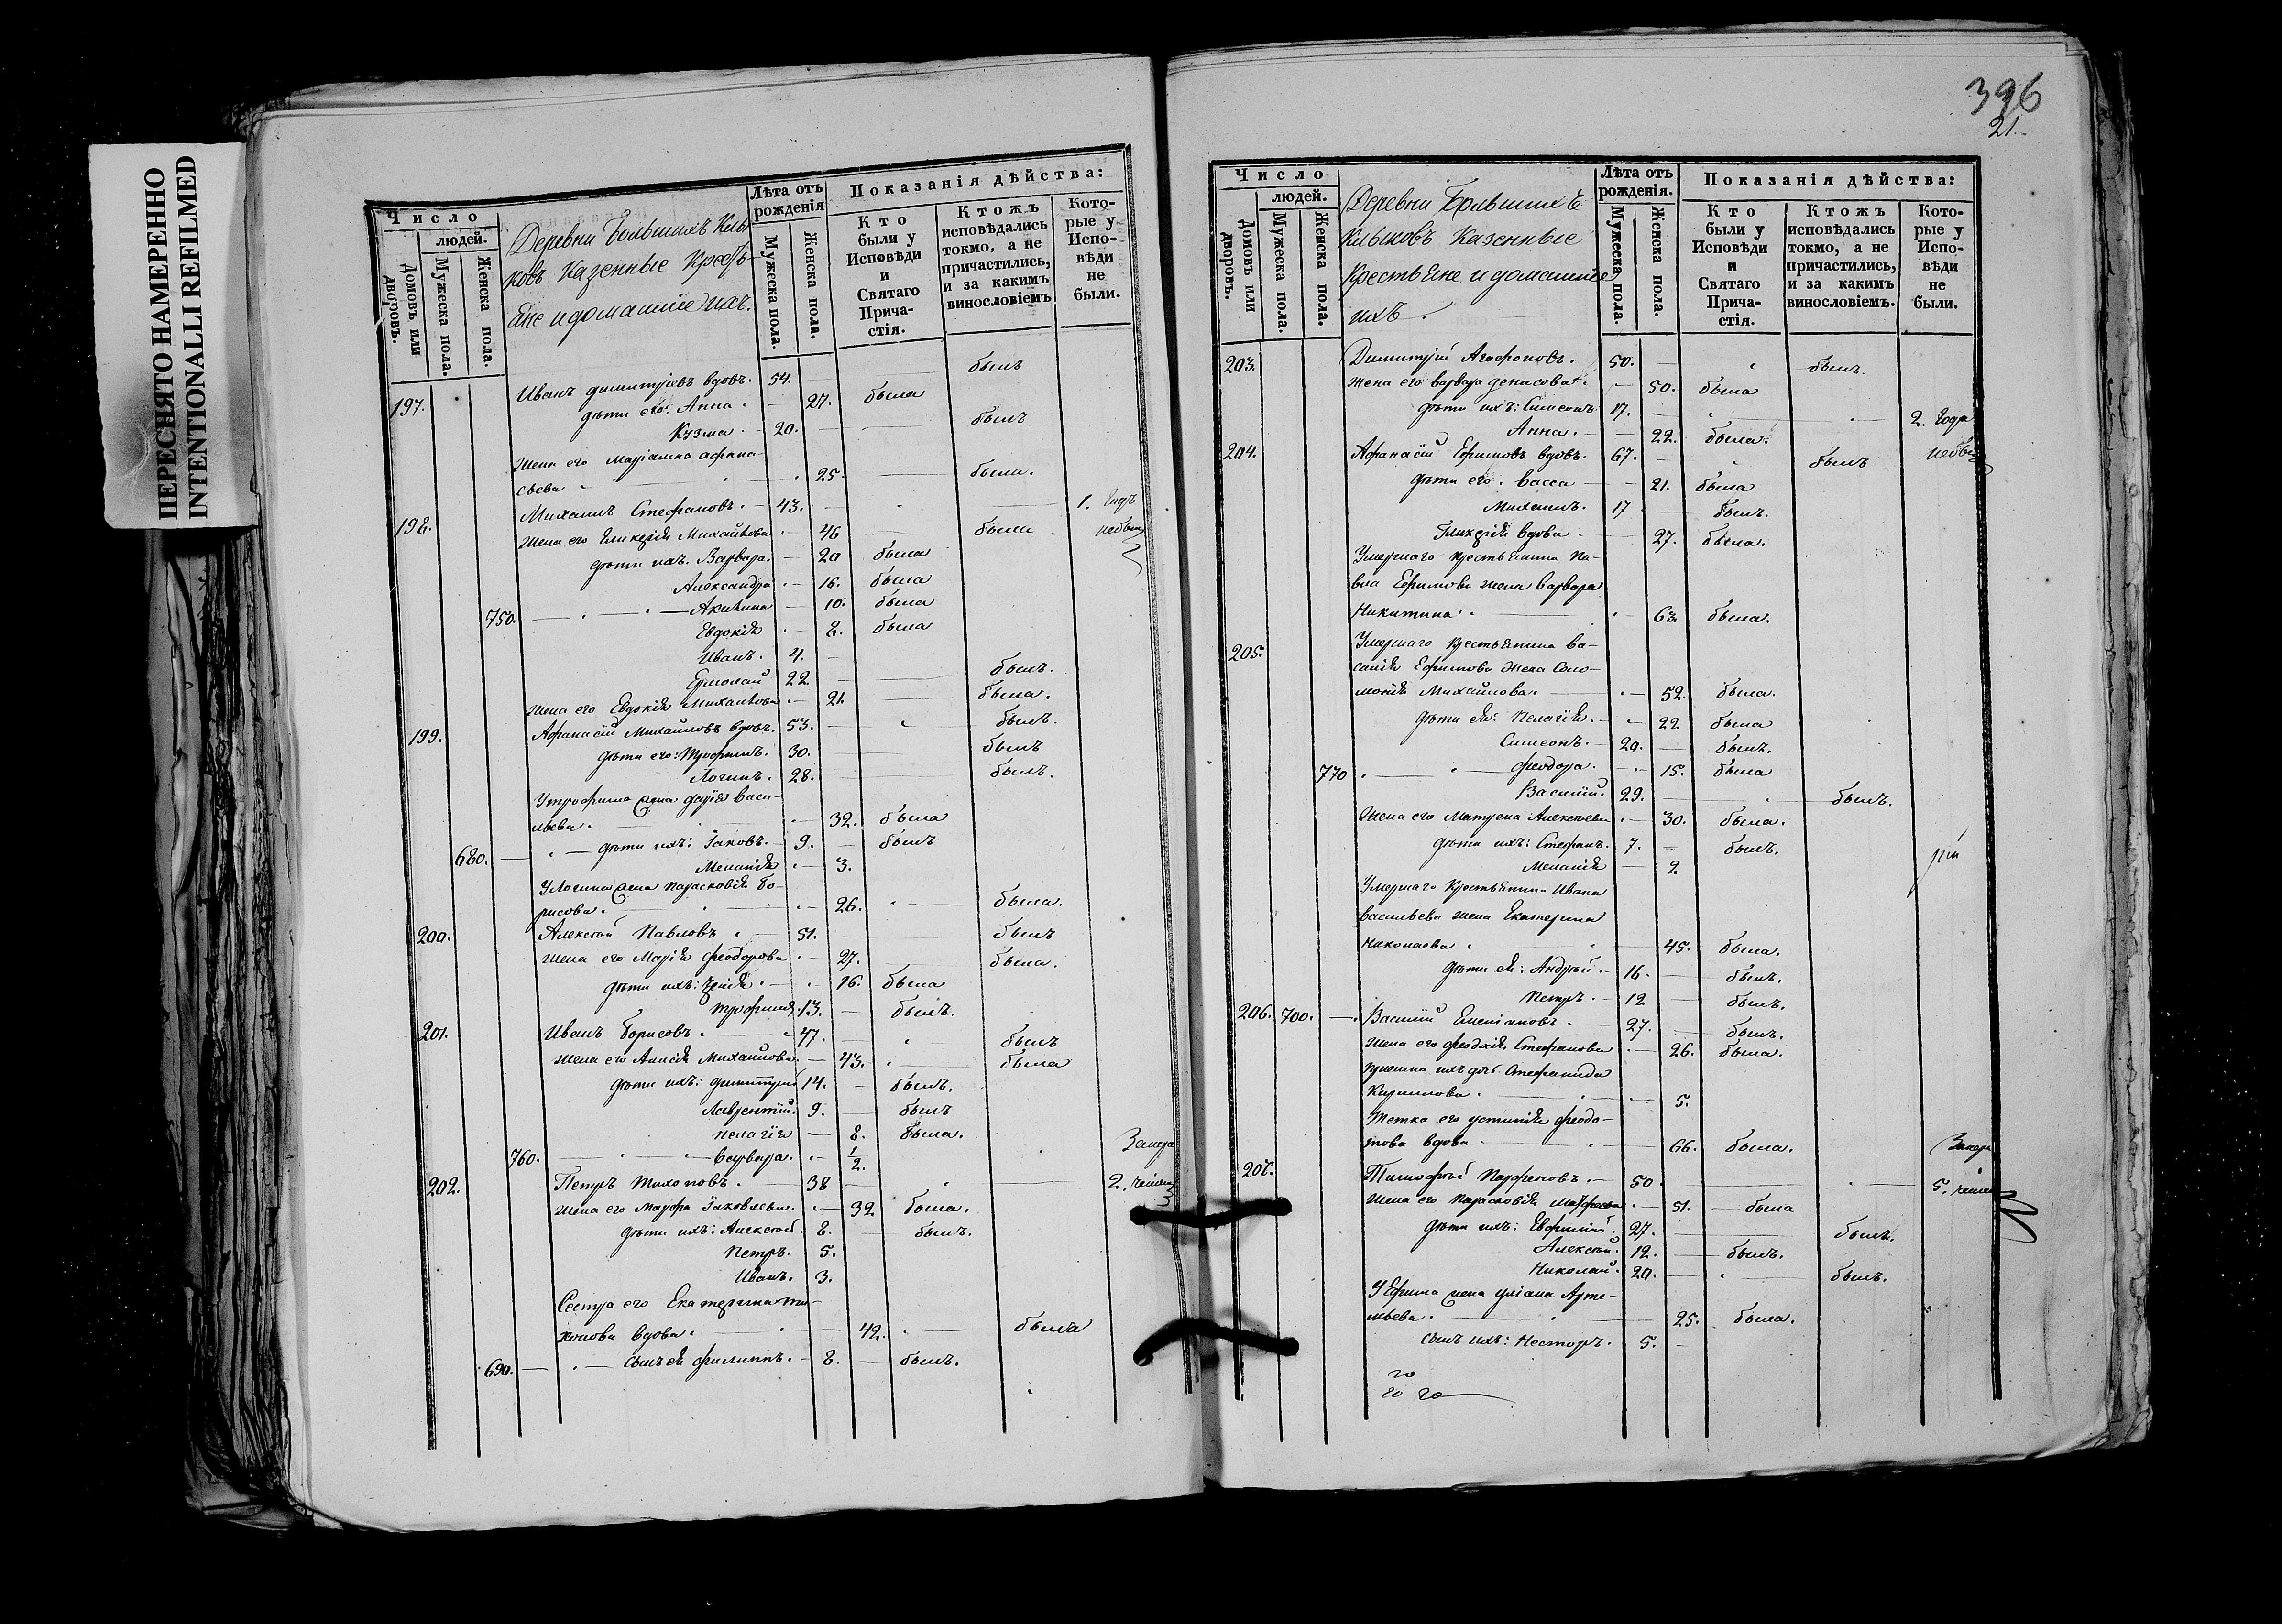 ПЕРЕСНЯТО НАМЕРЕННО
INTENTIONALLI REFILMED
Число
людей.
Домовъ или дворовъ.
Мужеска пола.
Женска пола.
Деревни Большихъ Клы-
ковъ Казенные Кресть-
яне и домашніе ихъ.
Лѣта отъ рожденія
Мужеска пола.
Женска пола.
Показанія дѣйства:
Кто были у Исповѣди и Святаго Прича-стія.
Ктожъ исповѣдались токмо, а не причастились, и за какимъ винословіемъ
Кото-рые у Испо-вѣди не были.
197. Иванъ Димитріевъ вдовъ. 54. былъ
дѣти его: Анна. 27. была
Кузма. 20. былъ
Жена его Маріамна Афана-
сьева 25. была.
198. Михаилъ Стефановъ. 43. 1. годъ
Жена его Гликерія Михайлова 46 была
дѣти ихъ: Варвара. 20 была
Александра 16. была
750. Акилина 10. была
Евдокія 8. была
Иванъ. 4.
Ермолай 22. былъ.
Жена его Евдокія Михайлова 21. была.
199. Афанасій Михайловъ вдовъ. 53. былъ.
дѣти его: Трофимъ. 30. былъ
Логинъ. 28. былъ.
У Трофима жена Дарія Васи-
льева. 32. была
680. дѣти ихъ: Іаковъ. 9. былъ
Меланія 3.
У Логина жена Парасковія Бо-
рисова. 26. была.
200. Алексѣй Павловъ 51. былъ
Жена его Марія Феодорова 27. была.
дѣти ихъ: 16. была
Трофимъ 13. былъ.
201. Иванъ Борисовъ. 47. былъ
Жена его Анисія Михайлова. 43. была
дѣти ихъ: Димитрій 14. былъ.
Лаврентій. 9. былъ
Пелагія 8. была.
760. Варвара. 1/2.
202. Петръ Тихоновъ. 38 2.
Жена его Марфа Іаковлева. 32 была.
дѣти ихъ: Алексѣй. 8. былъ.
Петръ. 5.
Иванъ. 3.
Сестра его Екатерина Ти-
хонова вдова. 42. была
690. сынъ ея Филиппъ. 8. былъ.
396
21.
Число
людей.
Домовъ или дворовъ.
Мужеска пола.
Женска пола.
Деревни Большихъ
Клыковъ Казенные
Крестьяне и домашніе
ихъ.
Лѣта отъ рожденія.
Мужеска пола.
Женска пола.
Показанія дѣйства:
Кто были у Исповѣди и Святаго Прича-стія.
Ктожъ исповѣдались токмо, а не причастились, и за какимъ винословіемъ.
Кото-рые у Испо-вѣди не были.
203. Димитрій Агафоновъ. 50. былъ.
Жена его Варвара Денисова. 50. была
дѣти ихъ: Симеонъ 17. 2. года
Анна. 22. была.
204. Афанасій Ефимовъ вдовъ. 67. былъ
дѣти его: Васса 21. была
Михаилъ. 17 былъ.
Гликерія вдова. 27. была.
Умершаго крестьянина Па-
вла Ефимова жена Варвара
Никитина. 63 была.
205. Умершаго крестьянина Ва-
силія Ефимова жена Соло-
монія Михайлова. 52. была.
дѣти ея: Пелагія. 22 была
Симеонъ. 20. былъ.
770 Феодора. 15. была
Василій. 29. былъ.
Жена его Матрона Алексѣева 30. была.
дѣти ихъ: Стефанъ. 7. былъ.
Меланія 2
Умершаго крестьянина Ивана
Васильева жена Екатерина
Николаева 45. была.
дѣти ея: Андрей. 16. былъ.
Петръ. 12 былъ.
206. 700. Василій Емеліановъ. 27. былъ.
Жена его Феодосія Стефанова 26. была.
дочь Стефанида
Кириллова. 5.
Тетка его Устинія Феодо-
това вдова 66. была.
207. Тимофей Парфеновъ. 50. 5.
Жена его Парасковія 51. была
дѣти ихъ: Евфимій. 27. былъ.
Алексѣй. 12. былъ.
Николай. 20. былъ.
У Ефима жена Уліана Арте-
мьева. 25. была.
сынъ ихъ: Несторъ. 5.